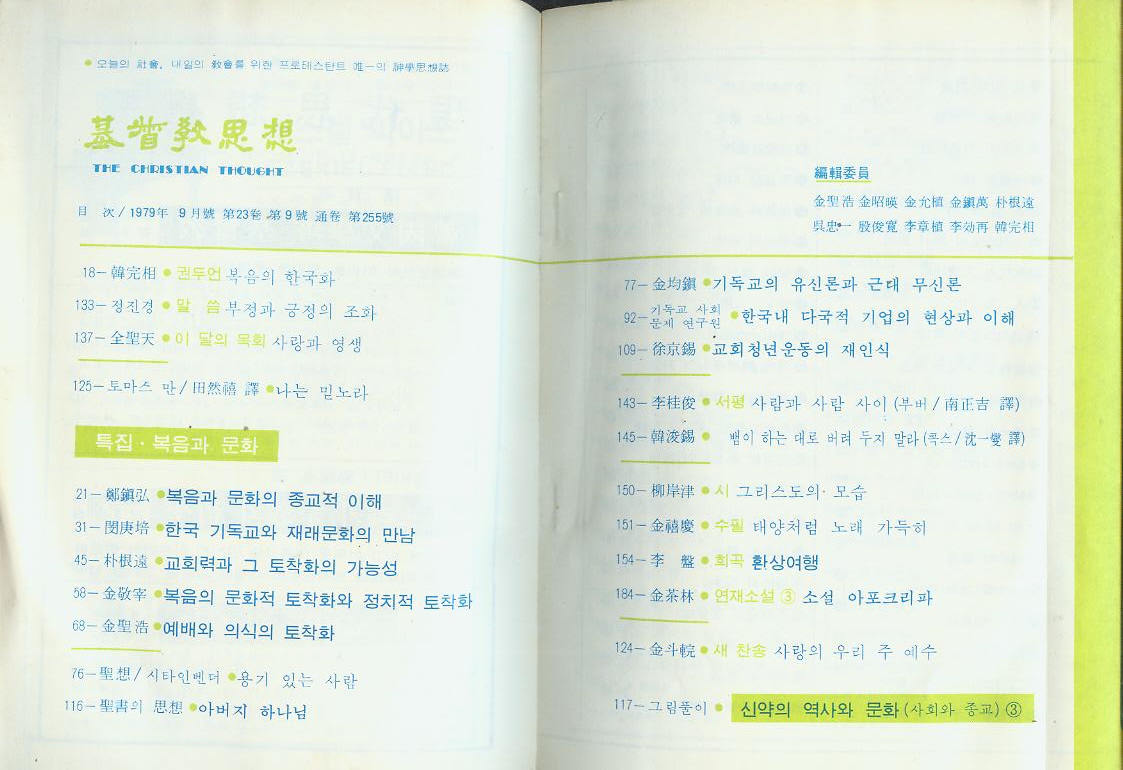 ● 오늘의 社會, 내일의 敎會를 위한 프로테스탄트 唯一의 神學思想誌
基督敎思想
THE CHRISTIAN THOUGHT
目 次/1979年 9月號 第23卷 第9號 通卷 第255號
18—韓完相 ● 권두언 복음의 한국화
133—정진경 ● 말 씀 부정과 긍정의 조화
137—全聖天 ● 이 달의 목회 사랑과 영생
125—토마스 만/田然禧 譯 ● 나는 믿노라
특집·복음과 문화
21—鄭鎭弘 ● 복음과 문화의 종교적 이해
31—閔庚培 ● 한국 기독교와 재래문화의 만남
45—朴根遠 ● 교회력과 그 토착화의 가능성
58—金敬宰 ● 복음의 문화적 토착화와 정치적 토착화
68—金聖浩 ● 예배와 의식의 토착화
76—聖想/시타인벤더 ● 용기 있는 사람
116—聖書의 思想 ● 아버지 하나님
編輯委員
金聖浩 金昭暎 金允植 金鎭萬 朴根遠
吳忠一 殷俊寬 李章植 李効再 韓完相
77—金均鎭 ● 기독교의 유신론과 근대 무신론
92—기독교 사회 문제 연구원 ● 한국내 다국적 기업의 현상과 이해
109—徐京錫 ● 교회청년운동의 재인식
143—李桂俊 ● 서평 사람과 사람 사이 (부버/南正吉 譯)
145—韓浚錫 ● 뱀이 하는 대로 버려 두지 말라 (콕스/沈一燮 譯)
150—柳岸津 ● 시 그리스도의 모습
151—金禧慶 ● 수필 태양처럼 노래 가득히
154—李 盤 ● 희곡 환상여행
184—金茶林 ● 연재소설 ③ 소설 아포크리파
124—金斗皖 ● 새 찬송 사랑의 우리 주 예수
117—그림풀이 ● 신약의 역사와 문화 (사회와 종교) ③